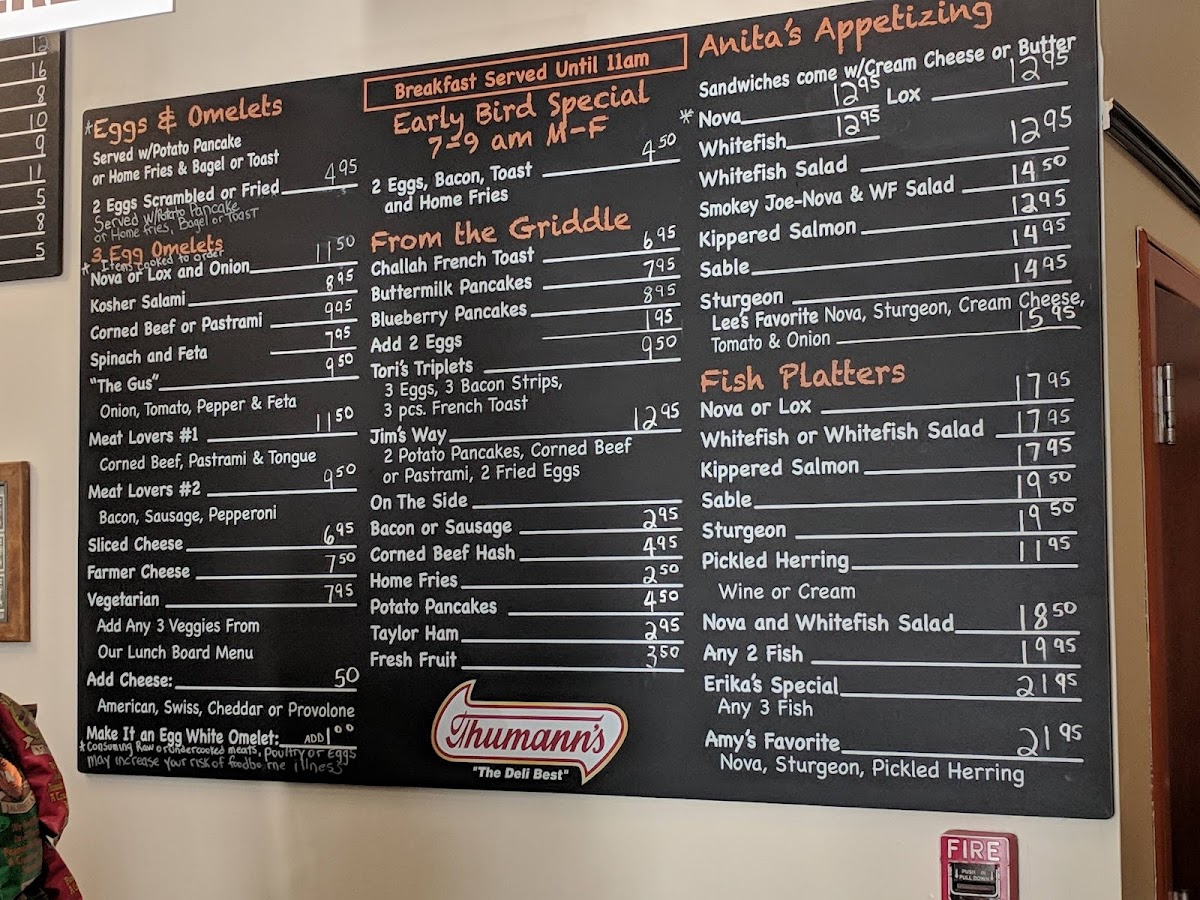 12
16
8
10
9
11
5
8
5
*Eggs & Omelets
Served w/Potato Pancake
or Home Fries & Bagel or Toast
2 Eggs Scrambled or Fried 4.95
Served w/Potato Pancake
or Home fries, Bagel or Toast
3 Egg Omelets
* Items cooked to order
Nova or Lox and Onion 11 50
Kosher Salami 8 95
Corned Beef or Pastrami 9 95
Spinach and Feta 7 95
"The Gus" 9 50
Onion, Tomato, Pepper & Feta
Meat Lovers #1 11 50
Corned Beef, Pastrami & Tongue
Meat Lovers #2 9 50
Bacon, Sausage, Pepperoni
Sliced Cheese 6 95
Farmer Cheese 7 50
Vegetarian 7 95
Add Any 3 Veggies From
Our Lunch Board Menu
Add Cheese: 50
American, Swiss, Cheddar or Provolone
Make It an Egg White Omelet: ADD 1 00
*Consuming Raw or undercooked meats, poultry or Eggs
may increase your risk of foodborne illness
Breakfast Served Until 11am
Early Bird Special
7-9 am M-F
2 Eggs, Bacon, Toast 4 50
and Home Fries
From the Griddle
Challah French Toast 6 95
Buttermilk Pancakes 7 95
Blueberry Pancakes 8 95
Add 2 Eggs 1 95
Tori's Triplets 9 50
3 Eggs, 3 Bacon Strips,
3 pcs. French Toast
Jim's Way 12 95
2 Potato Pancakes, Corned Beef
or Pastrami, 2 Fried Eggs
On The Side
Bacon or Sausage 2 95
Corned Beef Hash 4 95
Home Fries 2 50
Potato Pancakes 4 50
Taylor Ham 2 95
Fresh Fruit 3 50
Thumann's
"The Deli Best"
Anita's Appetizing
Sandwiches come w/Cream Cheese or Butter
*Nova 12 95 Lox 12 95
Whitefish 12 95
Whitefish Salad 12 95
Smokey Joe-Nova & WF Salad 14 50
Kippered Salmon 12 95
Sable 14 95
Sturgeon 14 95
Lee's Favorite Nova, Sturgeon, Cream Cheese,
Tomato & Onion 15 95
Fish Platters
Nova or Lox 17 95
Whitefish or Whitefish Salad 17 95
Kippered Salmon 17 95
Sable 19 50
Sturgeon 19 50
Pickled Herring 11 95
Wine or Cream
Nova and Whitefish Salad 18 50
Any 2 Fish 19 95
Erika's Special 21 95
Any 3 Fish
Amy's Favorite 21 95
Nova, Sturgeon, Pickled Herring
FIRE
PUSH IN
PULL DOWN